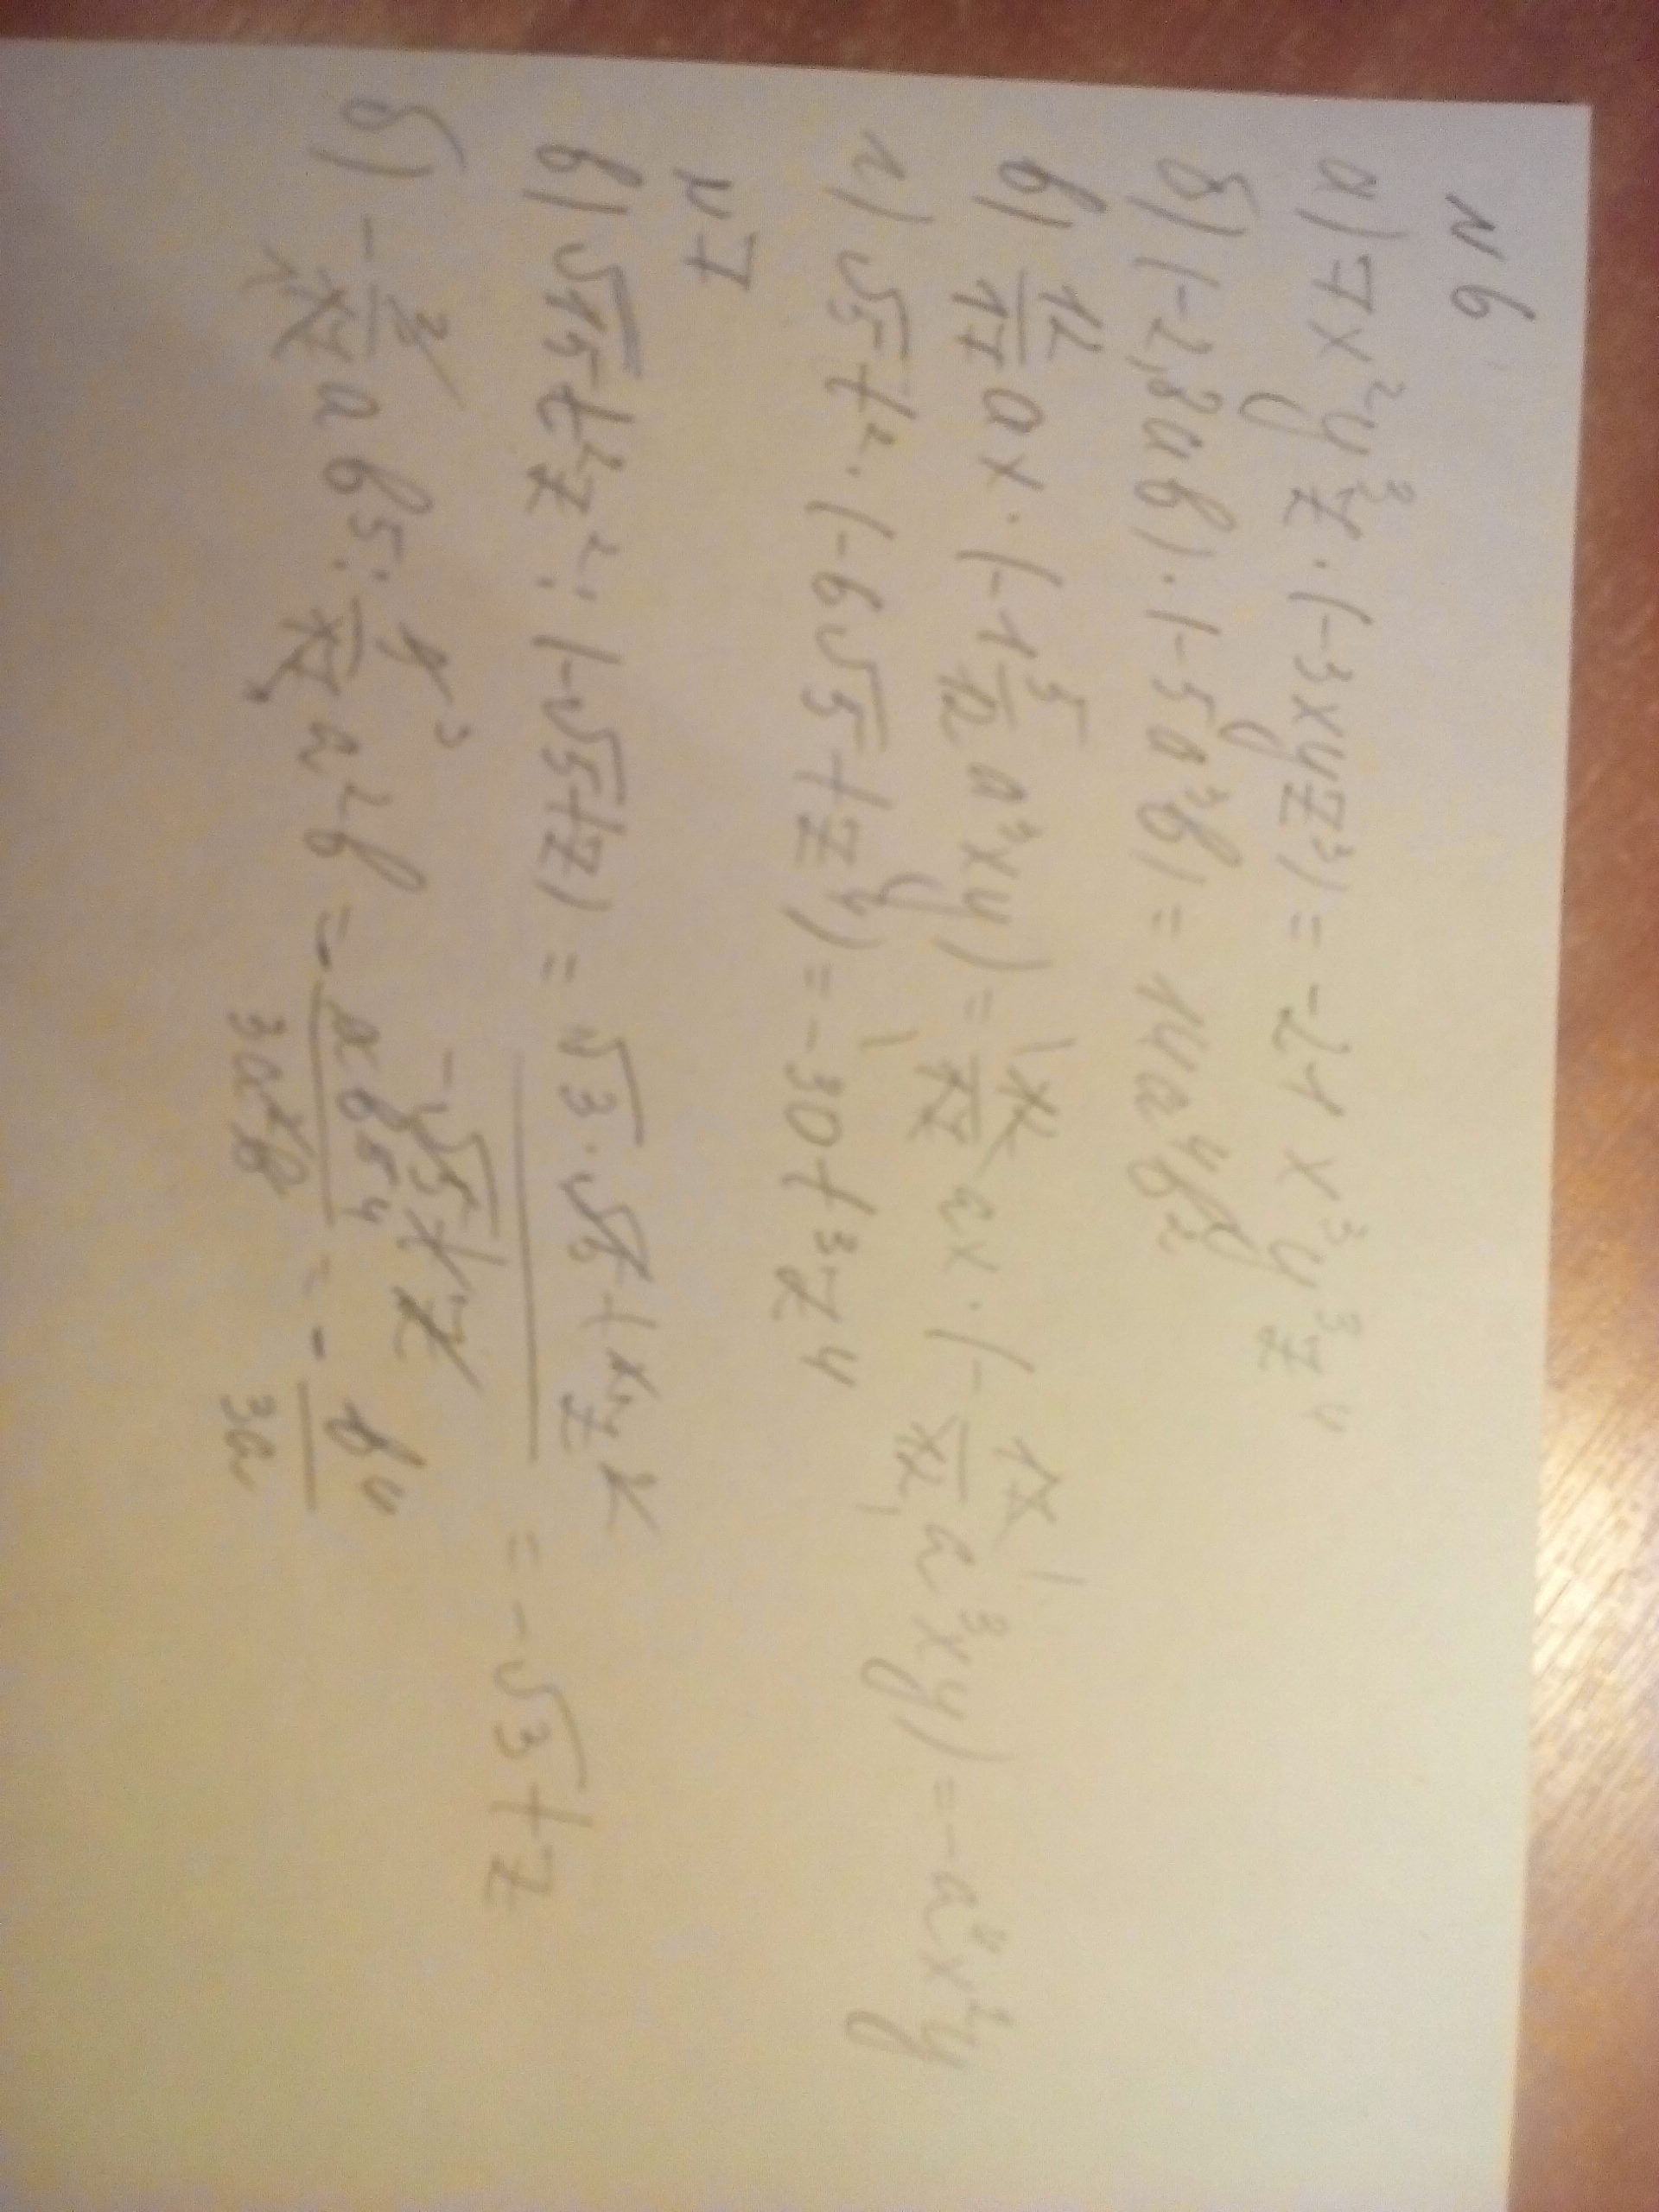 N 6
а) 7x²y³z · (-3xyz³) = -21 x³y³z⁴
б) (-2,8ab) · (-5a³b) = 14a⁴b²
в) 12/17 ax · (-1 5/12 a³xy) = 12/17 ax · (- 17/12 a³xy) = -a²x²y
г) √5 t² · (-6√5 tz⁴) = -30t³z⁴
N 7
в) √15 t²z² : (-√5 tz) = √3 · √5 t²z² / -√5 tz = -√3 tz
б) - 2/17 ab⁵ : a²b = - ab⁵ / 3a²b = - b⁴ / 3a